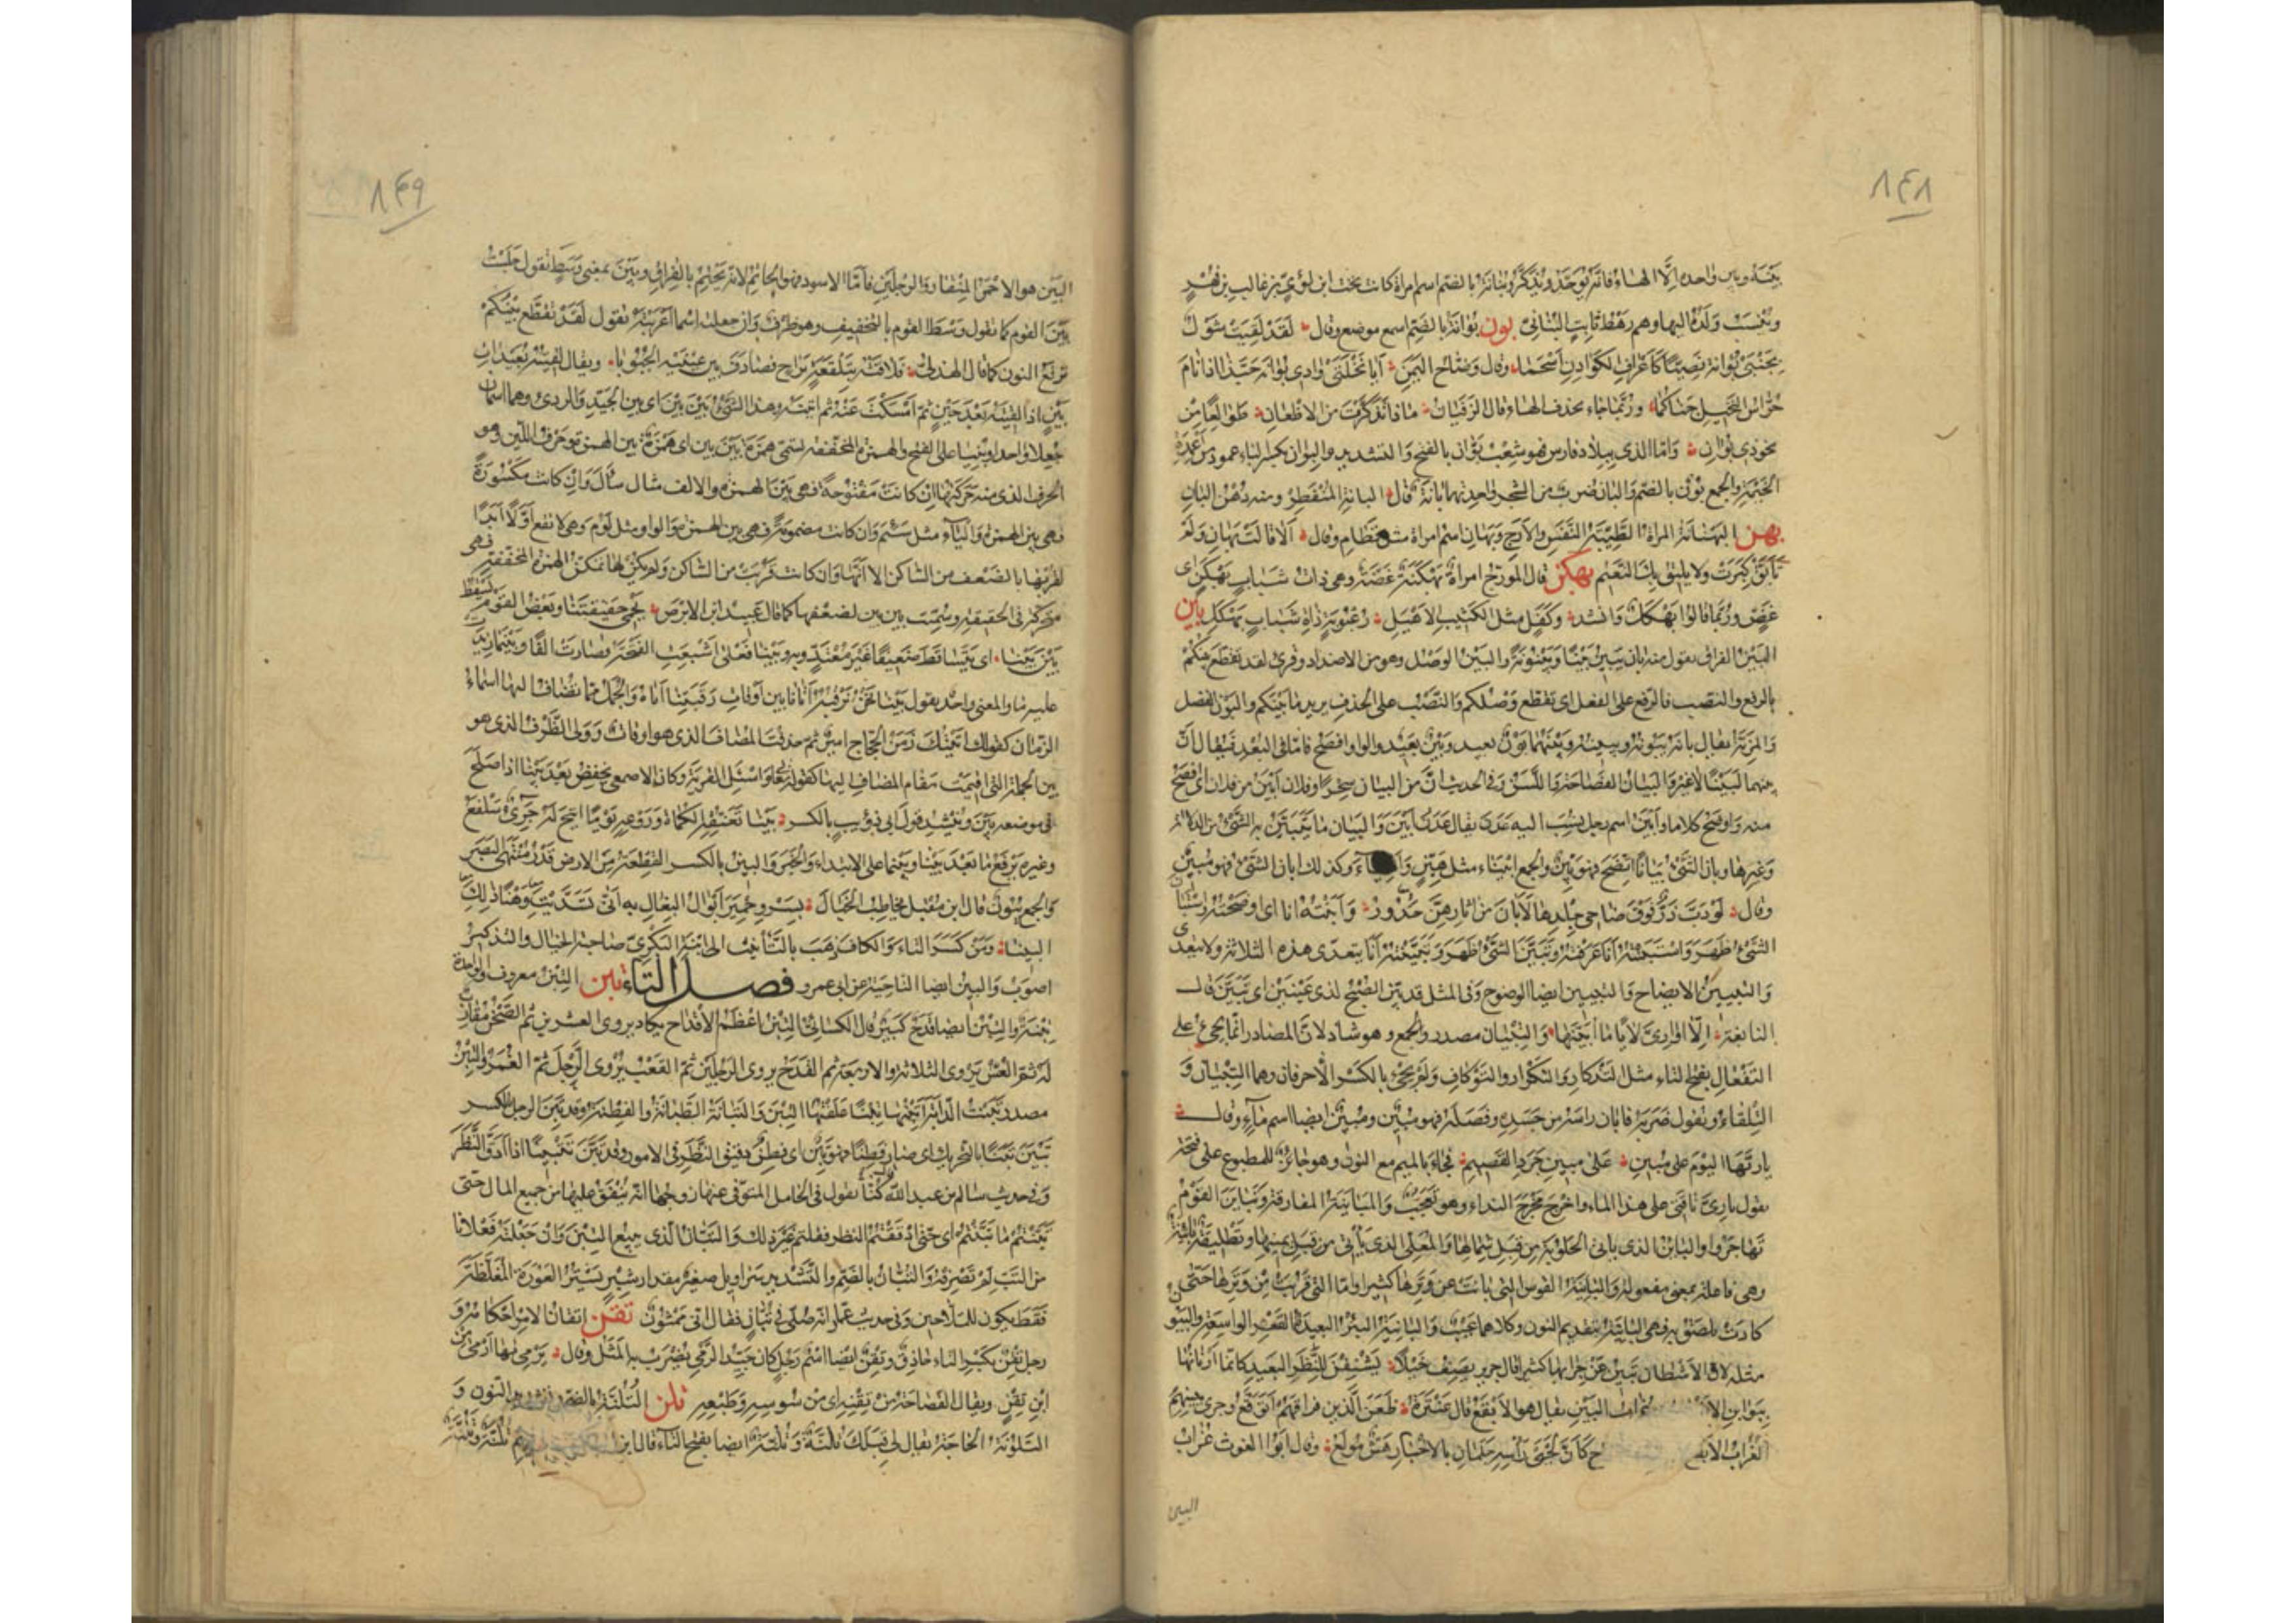 ۸۴۸
بينه وبين واحده الا الهاء فانه يوحد ويذكر وبنانة بالضم اسم امراة كانت تحت ابن لؤي بن غالب بن فهر
وينسب ولده اليها وهم رهط ثابت البناني بون بوانة بالضم اسم موضع وقال لقد لقيت شول
بجنبي بوانة نصيا كاعراف الكوادن اسحما وقال وضاح اليمن ايا نخلتي وادي بوانة حبذا اذا نام
حراس النخيل جناكما وربما جاء بحذف الهاء قال الزفيان ماذا تذكرت من الاظعان طوالعا من
نحو ذي بوان واما الذي ببلاد فارس فهو شعب بوان بالفتح والتشديد والبوان بكسر الباء عمود من اعمدة
الخيمة والجمع بون بالضم والبان ضرب من الشجر واحدتها بانة قال البانة المنفطر ومنه دهن البان
بهن البهنانة المراة الطيبة النفس والارج وبهان اسم امراة مثل قطام وقال الا قالت بهان ولم
تأبق كبرت ولا يليق بك النعيم بهكن قال المورج امراة بهكنة غضة وهي ذات شباب بهكن اي
غض وربما قالوا بهكل وانشد وكفل مثل الكثيب الاهيل رعبوبة ذات شباب بهكل بين
البين الفراق تقول منه بان يبين بينا وبينونة والبين الوصل وهو من الاضداد وقرئ لقد تقطع بينكم
بالرفع والنصب فالرفع على الفعل اي تقطع وصلكم والنصب على الحذف يريد ما بينكم والبون الفضل
والمزية يقال بانه يبونه ويبينه وبينهما بون بعيد وبين بعيد والواو افصح فاما في البعد فيقال ان
بينهما لبينا لا غير والبيان الفصاحة واللسن وفي الحديث ان من البيان سحرا وفلان ابين من فلان اي افصح
منه واوضح كلاما وابين اسم رجل ينسب اليه عدن يقال عدن ابين والبيان ما يتبين به الشيء من الدلالة
وغيرها وبان الشيء بيانا اتضح فهو بين والجمع ابيناء مثل هين واهيناء وكذلك ابان الشيء فهو مبين
وقال لو دب ذر فوق ضاحي جلدها لابان من اثارهن حدور وابنته انا اي اوضحته واستبان
الشيء ظهر واستبنته انا عرفته وتبين الشيء ظهر وتبينته انا يتعدى هذه الثلاثة ولا يتعدى
والتبيين الايضاح والتبيين ايضا الوضوح وفي المثل قد بين الصبح لذي عينين اي تبين قال
النابغة الا اواري لايا ما ابينها والتبيان مصدر والجمع وهو شاذ لان المصادر انما يجيء على
التفعال بفتح التاء مثل التذكار والتكرار والتوكاف ولم يجئ بالكسر الا حرفان وهما التبيان و
التلقاء وتقول ضربه فابان راسه من جسده وفصله فهو مبين ومبين ايضا اسم ماء وقال
يا ريها اليوم على مبين على مبين جرد القصيم فجاء بالميم مع النون وهو جائز للمطبوع على قبحه
يقول يا ري ناقتي على هذا الماء واخرج مخرج النداء وهو تعجب والمباينة المفارقة وتباين القوم
تهاجروا والبائن الذي ياتي الحلوبة من قبل شمالها والمعلي الذي يأتي من قبل يمينها وتطليقة بائنة
وهي فاعلة بمعنى مفعولة والبائنة القوس التي بانت عن وترها كثيرا واما التي قربت من وترها حتى
كادت تلصق به فهي البانية بتقديم النون وكلاهما عيب والبائنة البئر البعيدة القعر الواسعة والبيون
مثله لان الاشطان تبين عن جرابها كثيرا قال جرير يصف خيلا يشنفن للنظر البعيد كانما ارنانها
ببوائن الا غراب البين يقال هو الابقع قال عنترة ظعن الذين فراقهم اتوقع وجرى بينهم
الغراب الابقع ح كان لحيي راسه جلمان بالاخبار هش مولع وقال ابو الغوث غراب
البين
۸۴۹
البين هو الاحمر المنقار والرجلين فاما الاسود فهو الحاتم لانه يحتم بالفراق وبين بمعنى وسط تقول جلست
بين القوم كما تقول وسط القوم بالتخفيف وهو ظرف وان جعلته اسما اعربته تقول لقد تقطع بينكم
برفع النون كما قال الهذلي فلاقته ببلقعة براح فصادف بين عينيه الجبوبا ويقال لقيته بعيدات
بين اذا لقيته بعد حين ثم امسكت عنه ثم اتيته وهذا الشيء بين بين اي بين الجيد والردي وهما اسمان
جعلا واحدا وبنيا على الفتح والهمزة المخففة تسمى همزة بين بين اي همزة بين الهمزة وحرف اللين وهو
الحرف الذي منه حركتها ان كانت مفتوحة فهي بين الهمزة والالف مثال سأل وان كانت مكسورة
فهي بين الهمزة والياء مثل سئم وان كانت مضمومة فهي بين الهمزة والواو مثل لؤم وهي لا تقع اولا ابدا
لقربها بالضعف من الساكن الا انها وان كانت قربت من الساكن ولم يكن لها تمكن الهمزة المخففة فهي
متحركة في الحقيقة وسميت بين بين لضعفها كما قال عبيد ابن الابرص نحمي حقيقتنا وبعض القوم يسقط
بين بينا اي يتساقط ضعيفا غير معتد به وبينا فعلى اشبعت الفتحة فصارت الفا وبينما زيدت
عليه ما والمعنى واحد تقول بينا نحن نرقبه اتانا اي بين اوقات رقبتنا اتاه والجمل مما تضاف اليها اسماء
الزمان كقولك اتيتك زمن الحجاج امير ثم حذفت المضاف الذي هو اوقات وولى الظرف الذي هو
بين الجملة التي اقيمت مقام المضاف اليها كقوله تعالى واسئل القرية وكان الاصمعي يخفض بعد بينا اذا صلح
في موضعه بين وينشد قول ابي ذؤيب بالكسر بينا تعنقه الكماة وروغه يوما اتيح له جرئ سلفع
وغيره يرفع ما بعد بينا وبينما على الابتداء والخبر والبين بالكسر القطعة من الارض قدر منتهى البصر
والجمع بيون قال ابن مقبل يخاطب الخيال بسرو حمير ابوال البغال به انى تسديت وهنا ذلك
البينا ومن كسر التاء والكاف ذهب بالتأنيث الى ابنة البكري صاحبة الخيال والتذكير
اصوب والبين ايضا الناحية عن ابي عمرو فصل التاء تبن التبن معروف الواحدة
تبنة والتبن ايضا قدح كبير قال الكسائي التبن اعظم الاقداح يكاد يروي العشرين ثم الصحن مقارب
له ثم العس يروي الثلاثة والاربعة ثم القدح يروي الرجلين ثم القعب يروي الرجل ثم الغمر والتبن
مصدر تبنت الدابة اتبنها تبنا علفتها التبن والتبانة الطبانة والفطنة وقد تبن الرجل بالكسر
تبن تبنا بالتحريك اي صار فطنا فهو تبن اي فطن دقيق النظر في الامور وقد تبن تتبينا اذا ادق النظر
وفي حديث سالم بن عبد الله كنا نقول في الحامل المتوفى عنها زوجها انه ينفق عليها من جميع المال حتى
تبنتم ما تبنتم اي حتى ادققتم النظر فقلتم غير ذلك والتبان الذي يبيع التبن وان جعلته فعلانا
من التب لم تصرفه والتبان بالضم والتشديد سراويل صغير مقدار شبر يستر العورة المغلظة
فقط يكون للملاحين وفي حديث عمار انه صلى في تبان فقال اني ممثون تقن اتقان الامر احكامه و
رجل تقن بكسر التاء حاذق وتقن ايضا اسم رجل كان جيد الرمي يضرب به المثل وقال يرمي بها ارمى من
ابن تقن ويقال الفصاحة من تقنه اي من سوسه وطبعه تلن التلنة بالضم النون و
التلونة الحاجة يقال لي قبلك تلنة وتلنة ايضا بفتح التاء قال ابن